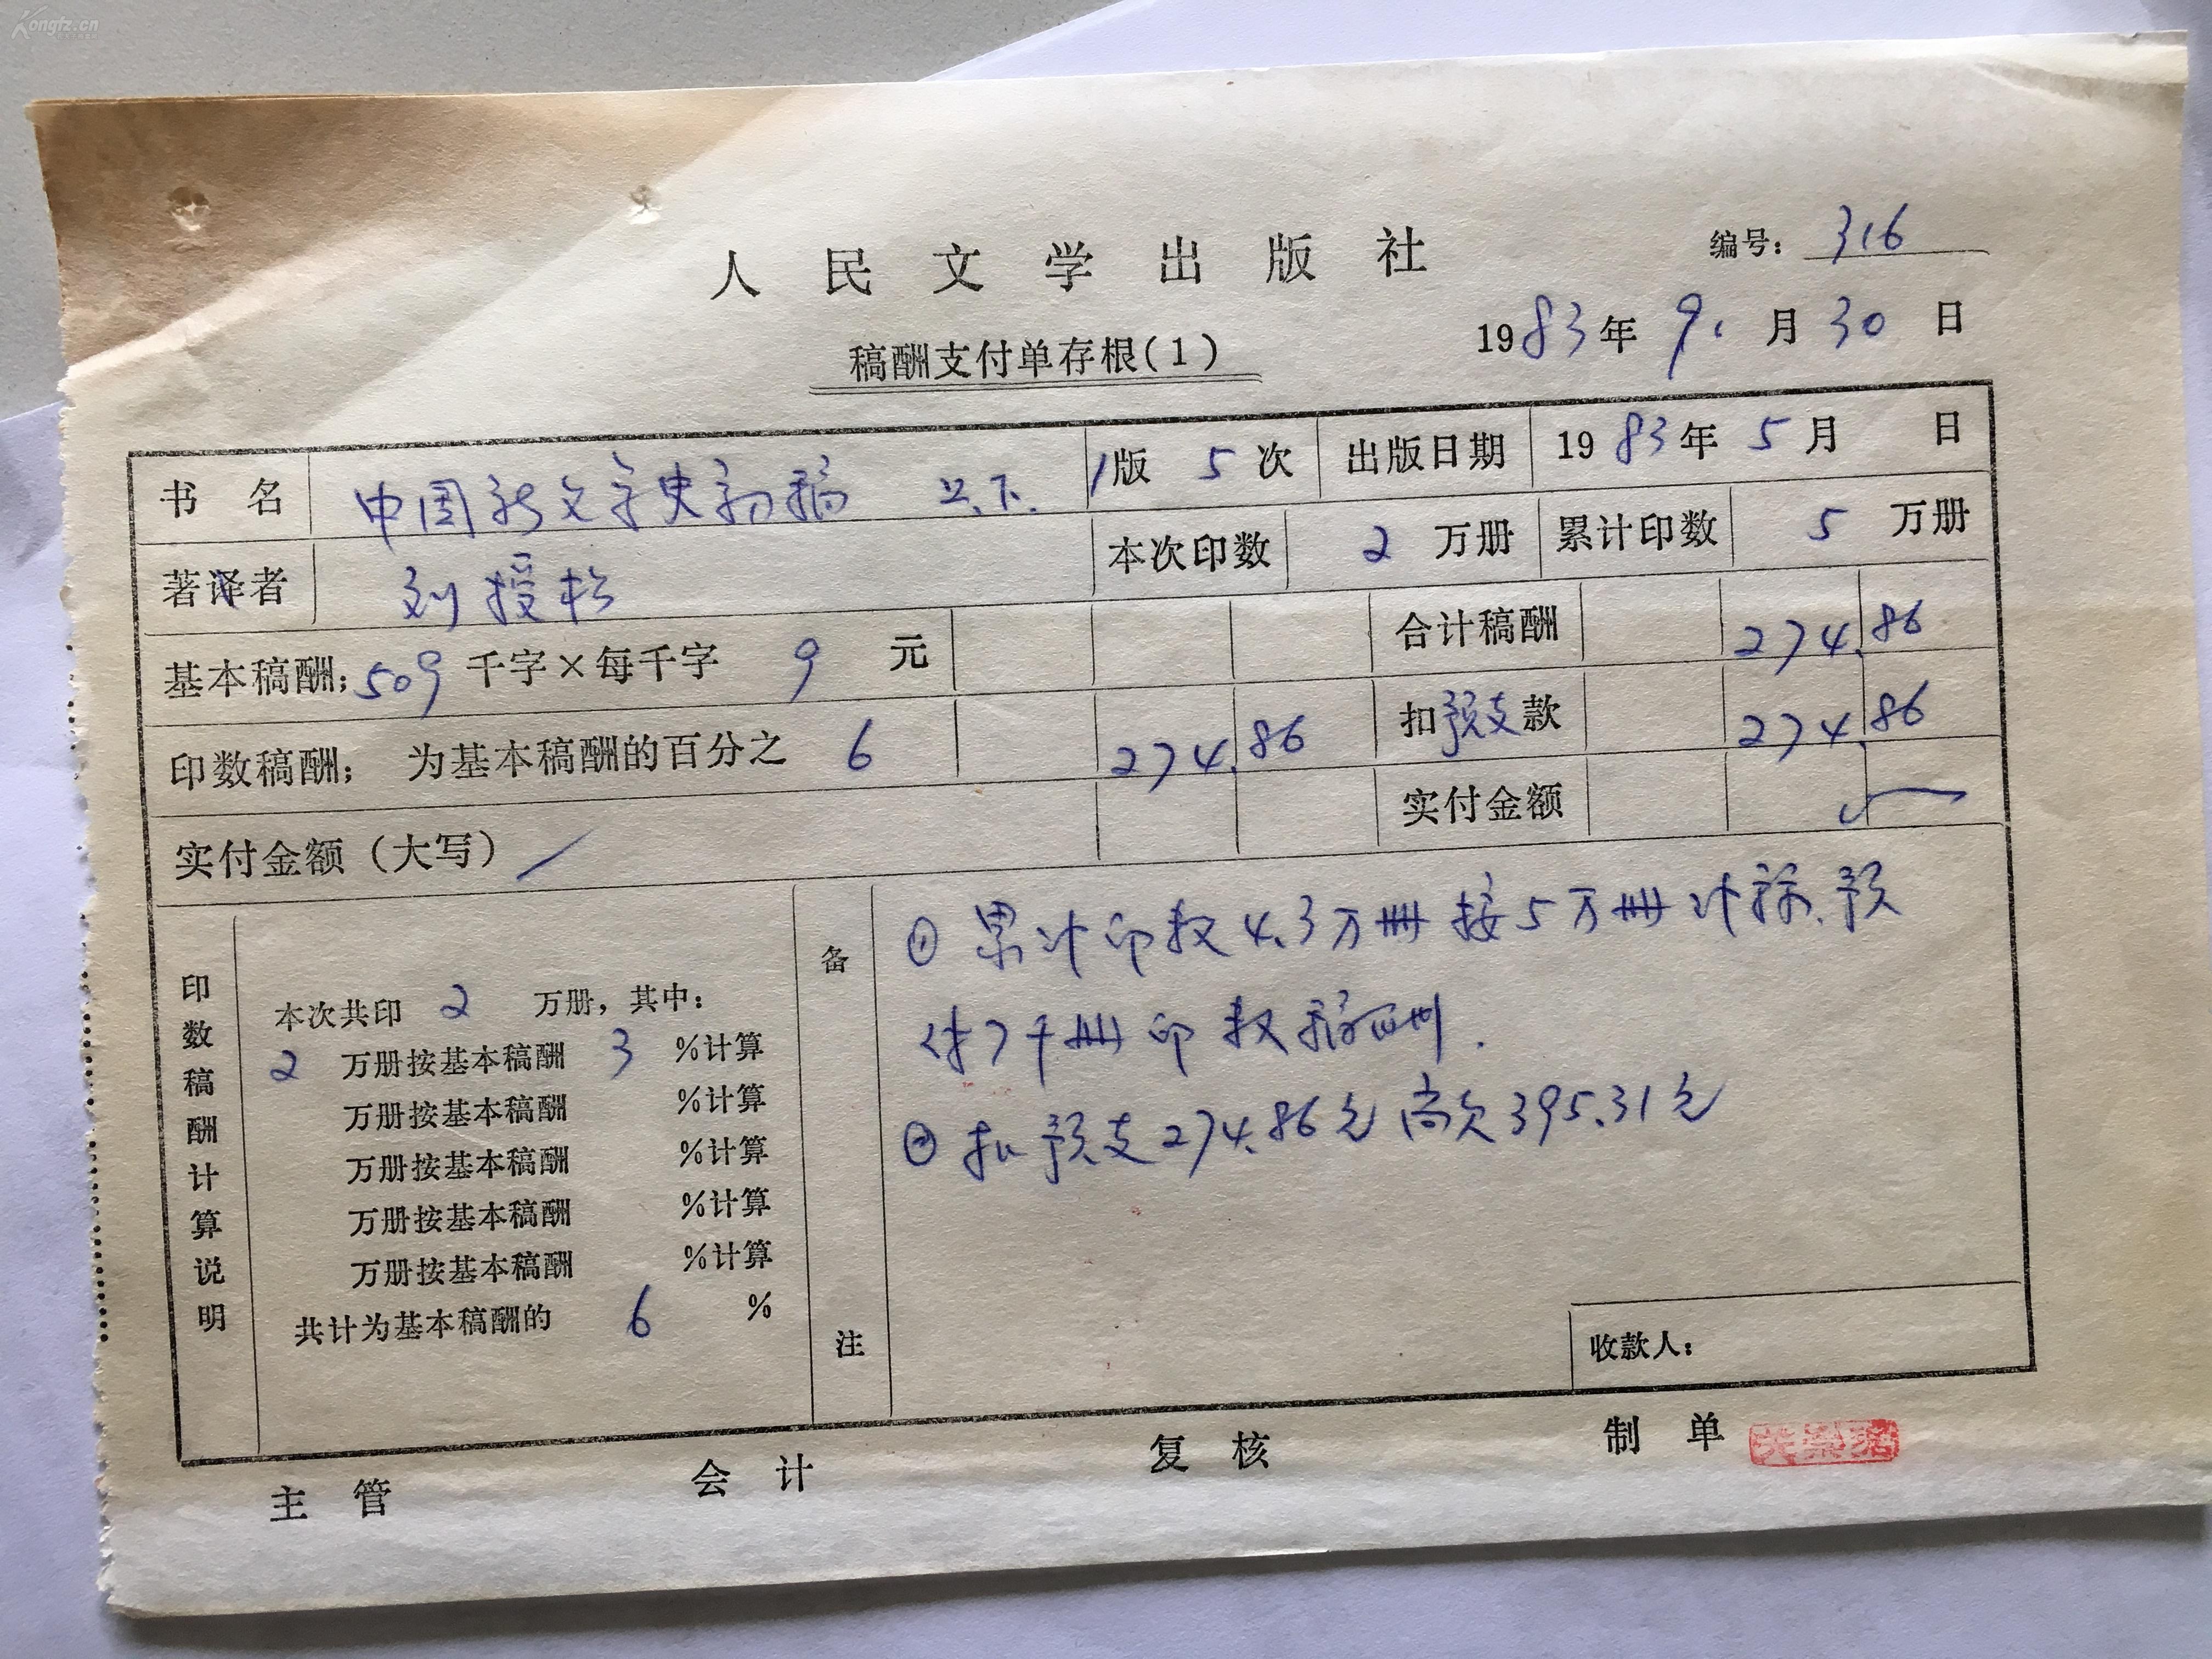 Kongfz.cn
人民文学出版社
编号：316
稿酬支付单存根(1)
1983年9月30日
书名 中国新文学史初稿 上.下. 1版 5次 出版日期 1983年5月 日
著译者 刘授松 本次印数 2万册 累计印数 5万册
基本稿酬；509千字×每千字 9 元 合计稿酬 274.86
印数稿酬； 为基本稿酬的百分之 6 274.86 扣预支款 274.86
实付金额
实付金额（大写）
印数稿酬计算说明
本次共印 2 万册，其中：
2 万册按基本稿酬 3 %计算
万册按基本稿酬 %计算
万册按基本稿酬 %计算
万册按基本稿酬 %计算
万册按基本稿酬 %计算
共计为基本稿酬的 6 %
备注
① 累计印数4.3万册按5万册计稿.预
付7千册印数稿酬.
② 扣预支274.86元尚欠395.31元
收款人：
主管 会计 复核 制单